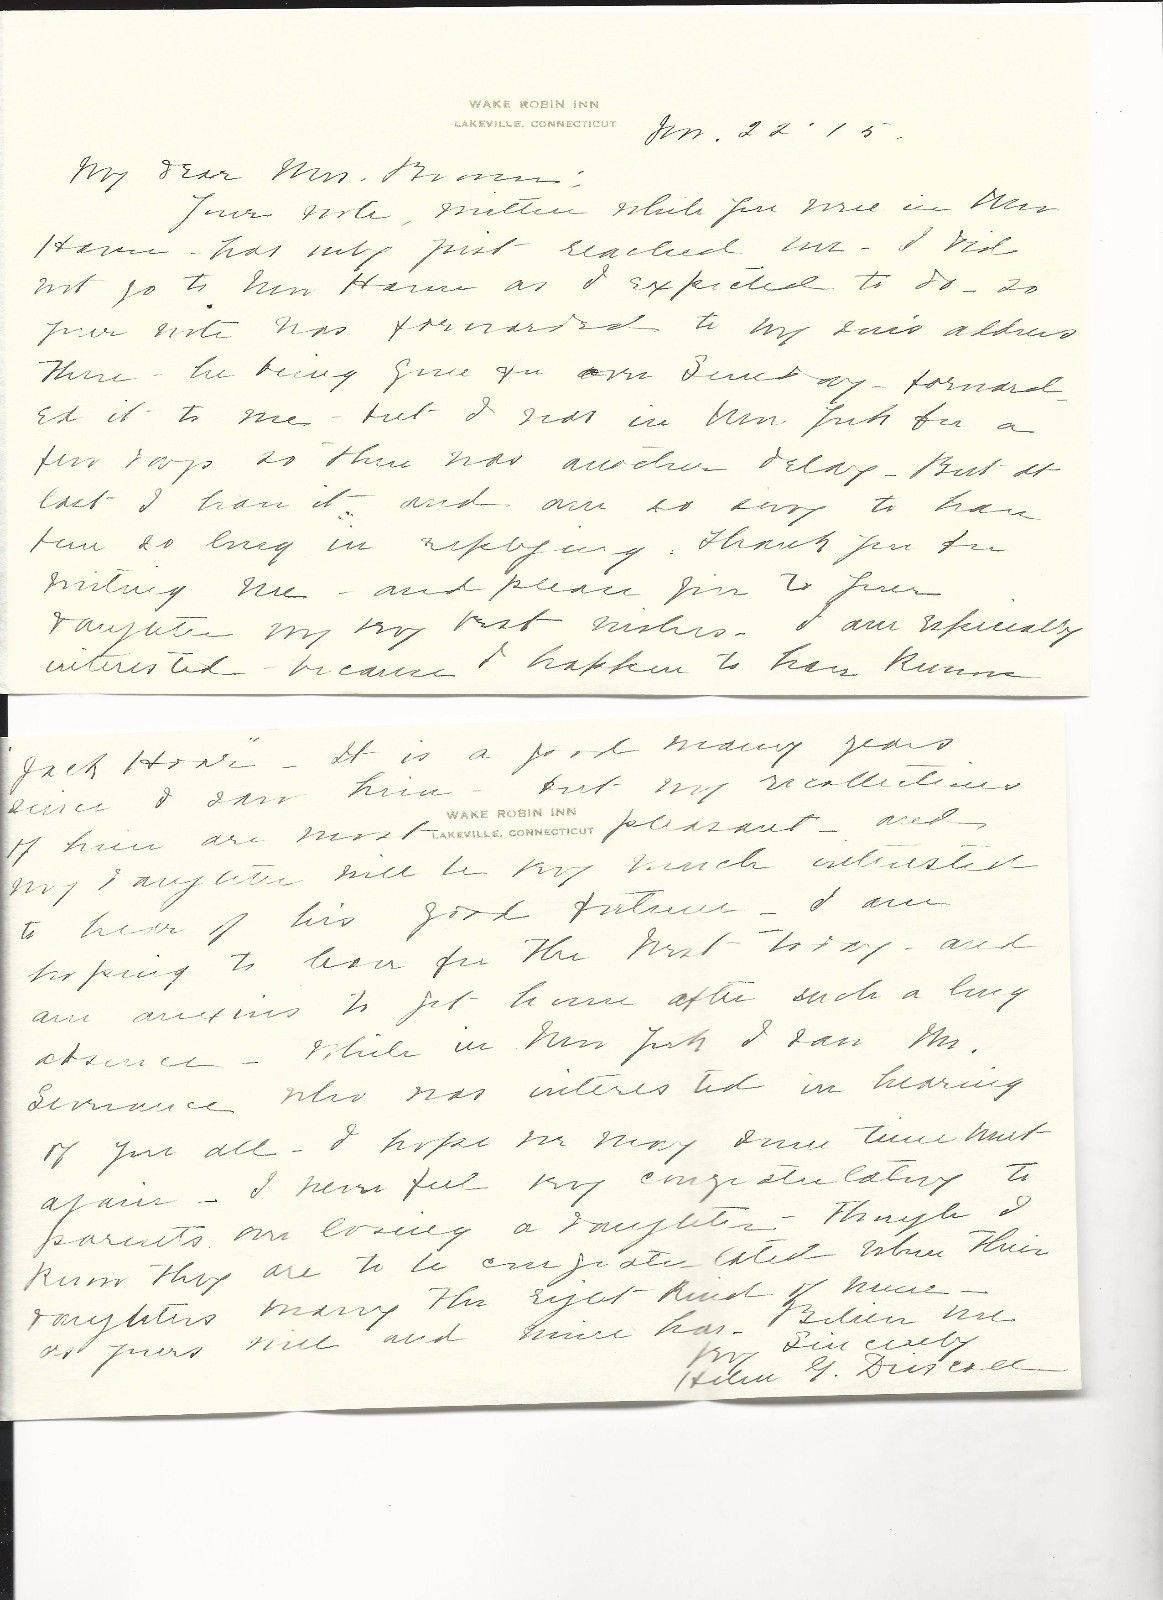 WAKE ROBIN INN
LAKEVILLE, CONNECTICUT
22 '15.
My dear Mrs. Brown:
Your note, written while you were in New
Haven - has only just reached me - I did
not go to New Haven as I expected to do - so
your note was forwarded to my son's address
There - he being gone for over Sunday - forward-
ed it to me - but I was in New York for a
few days so there was another delay - But at
last I have it - and am so sorry to have
been so long in replying. Thank you for
writing me - and please give to your
daughter my very best wishes - I am especially
interested - because I happen to have known
"Jack Hoar" - It is a good many years
since I saw him - but my recollections
WAKE ROBIN INN
LAKEVILLE, CONNECTICUT
of him are most pleasant - and
my daughter will be very much interested
to hear of his good fortune - I am
hoping to leave for the West today - and
am anxious to get home after such a long
absence - While in New York I saw Mr.
Severance who was interested in hearing
of you all - I hope we may some time meet
again - I never feel very congratulatory to
parents on losing a daughter - Though I
know they are to be congratulated when their
daughters marry the right kind of men -
as yours will and mine has - Believe me
Very Sincerely
Helen G. Driscoll